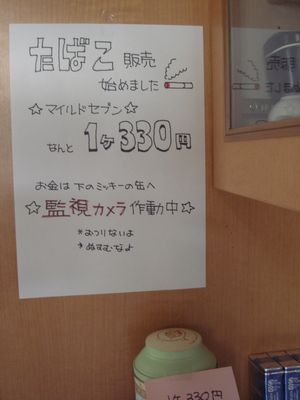 たばこ 販売
始めました
☆マイルドセブン☆
なんと 1ヶ330円
お金は 下のミッキーの缶へ
☆監視カメラ作動中☆
*おつりないよ
*ぬすむなよ
1ヶ330円